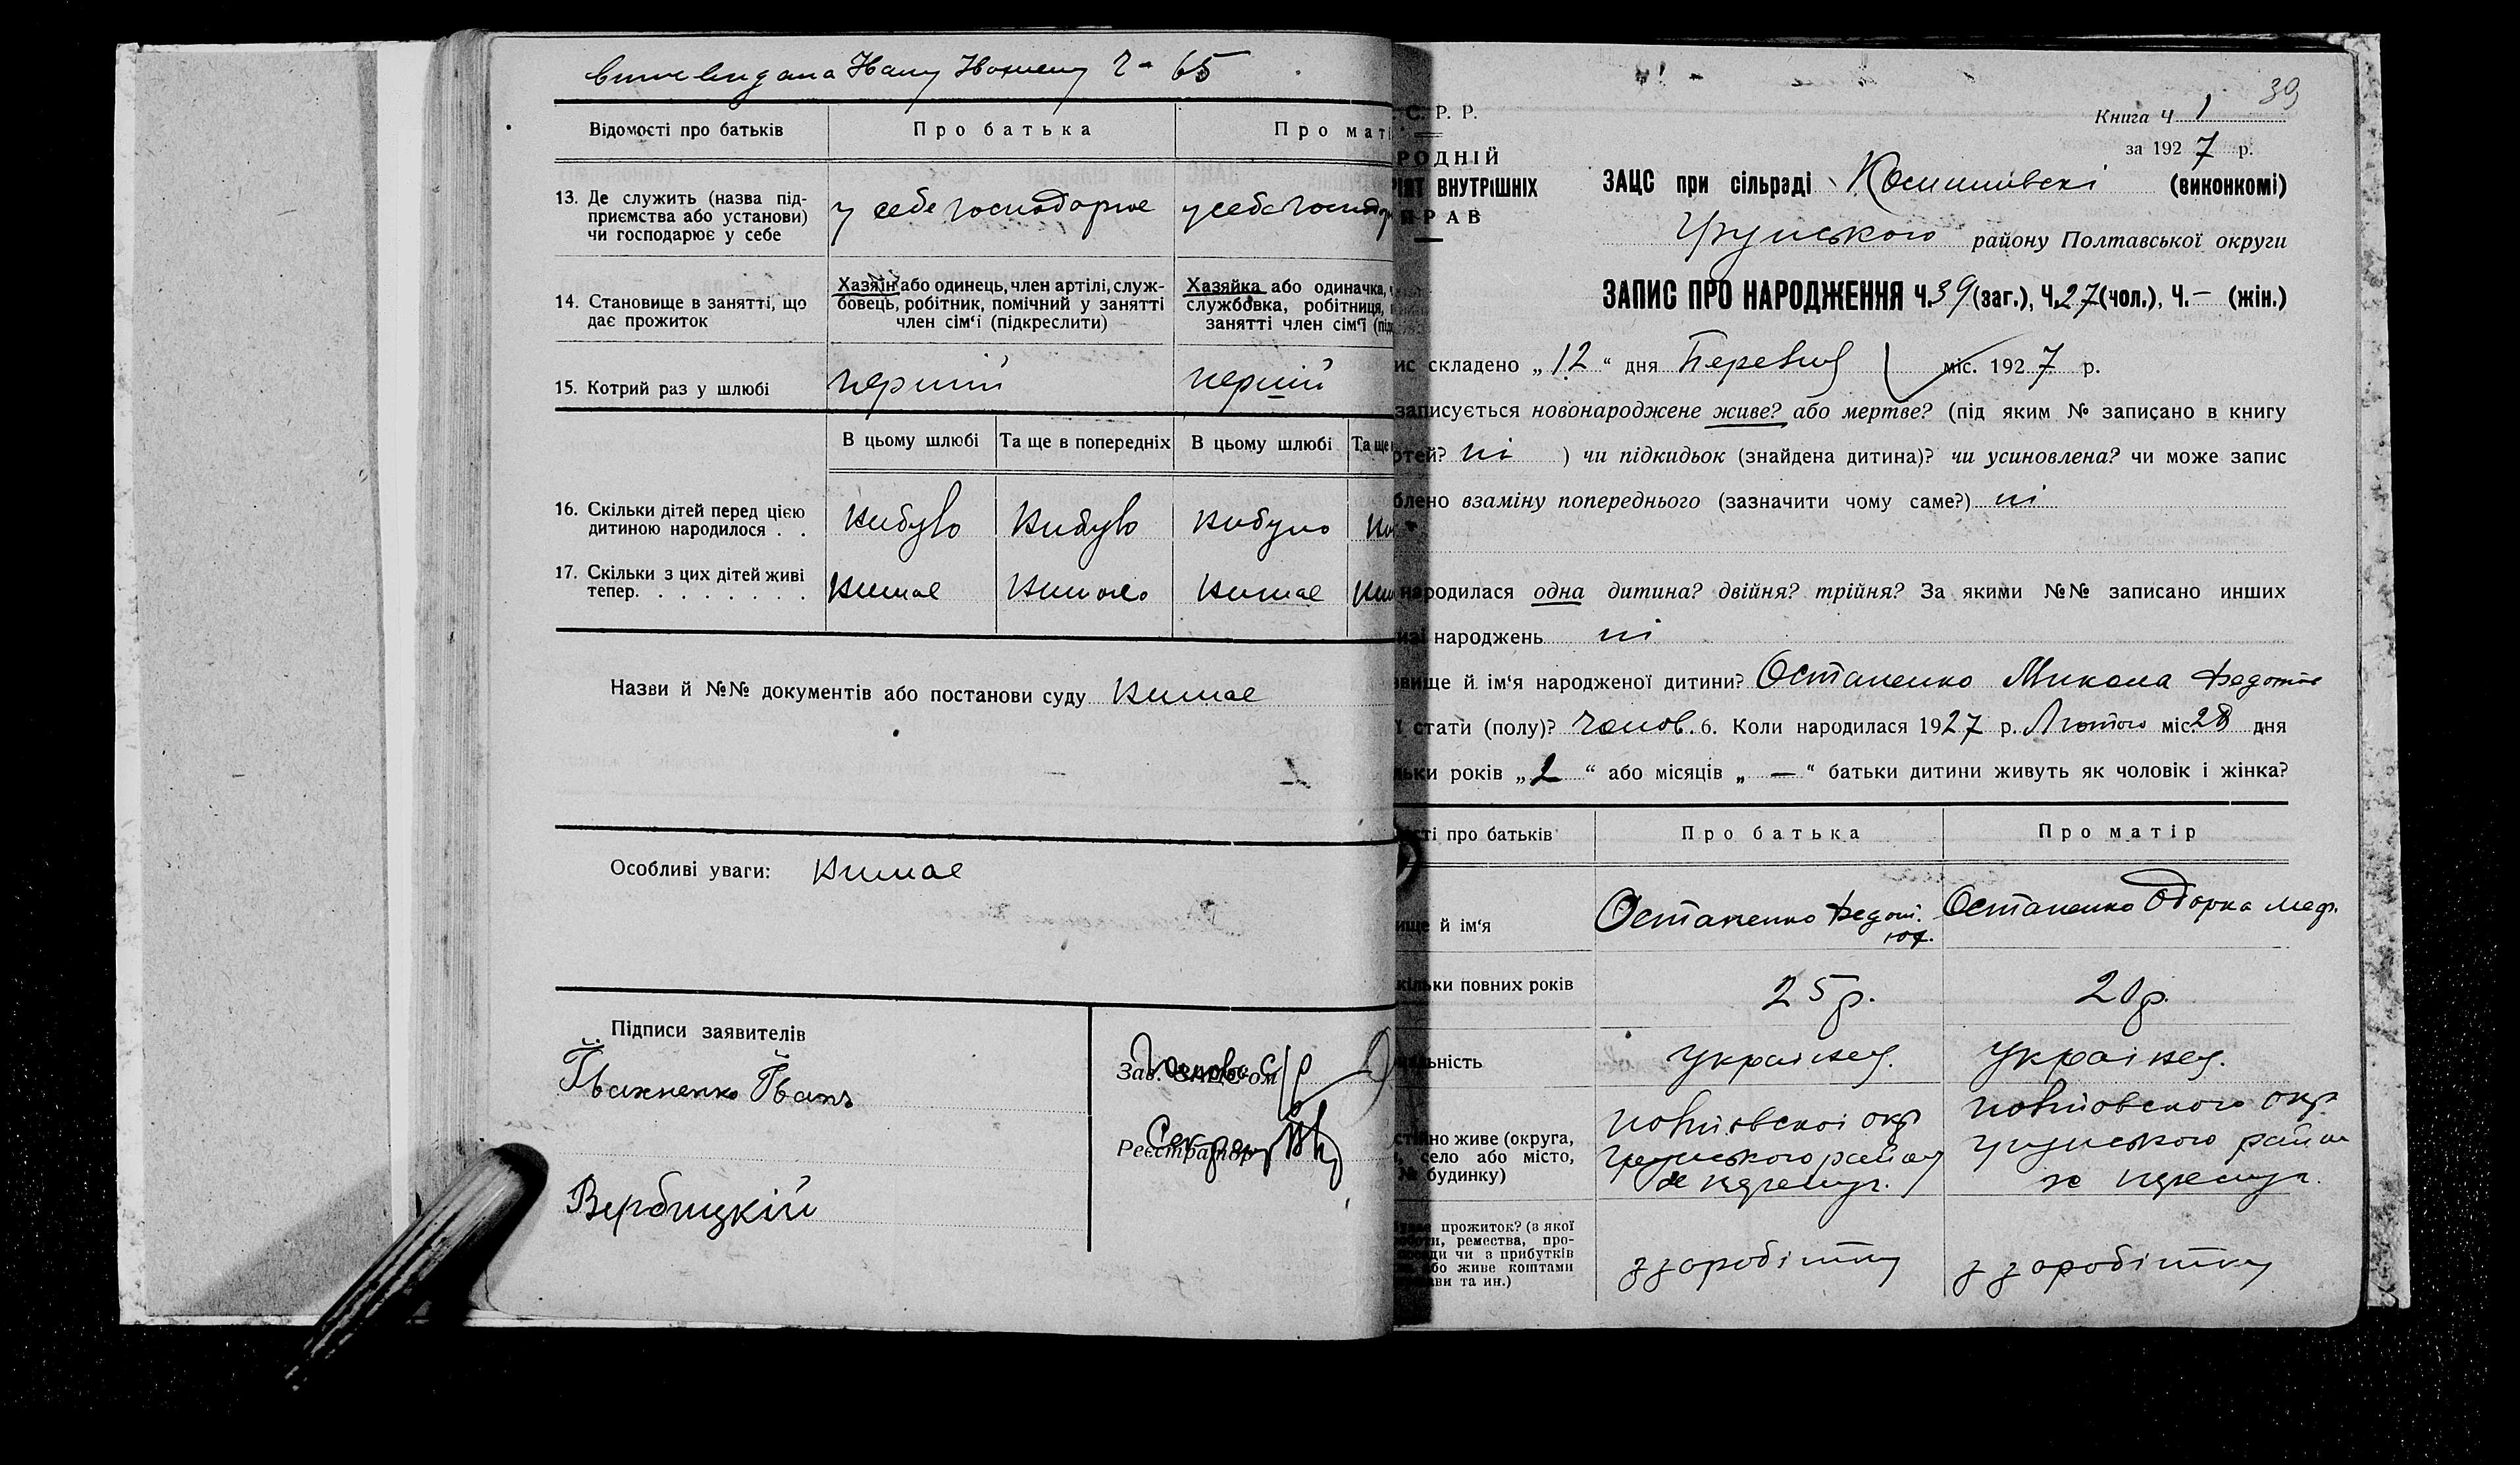 Ч - 65
Відомості про батьків
Про батька
Про маті
13. Де служить (назва під-
приємства або установи)
чи господарює у себе
у себе господарює
у себе господ
14. Становище в занятті, що
дає прожиток
Хазяїн або одинець, член артілі, служ-
бовець, робітник, помічний у занятті
член сім‘ї (підкреслити)
Хазяйка або одиначка,
службовка, робітниця,
занятті член сім‘ї (під
15. Котрий раз у шлюбі
перший
перший
В цьому шлюбі
Та ще в попередніх
В цьому шлюбі
Та ще
16. Скільки дітей перед цією
дитиною народилося . .
небуло
небуло
небуло
17. Скільки з цих дітей живі
тепер. . . . . . . .
немає
немає
немає
Назви й №№ документів або постанови суду немає
Особливі уваги: немає
Підписи заявителів
Іван
Вербицкій
Зав. ЗАЦС-ом
Голова С/р
Реєстратор
Секрет
39
Книга Ч 1
за 1927 р.
С. Р. Р.
РОДНІЙ
ІЯТ ВНУТРІШНІХ
ПРАВ
ЗАЦС при сільраді (виконкомі)
Грунського району Полтавської округи
ЗАПИС ПРО НАРОДЖЕННЯ Ч. 39 (заг.), Ч. 27 (чол.), Ч. — (жін.)
ис складено „12“ дня міс. 1927 р.
записується новонароджене живе? або мертве? (під яким № записано в книгу
ртей? ні ) чи підкидьок (знайдена дитина)? чи усиновлена? чи може запис
блено взаміну попереднього (зазначити чому саме?) ні
народилася одна дитина? двійня? трійня? За якими №№ записано инших
изі народжень ні
звище й ім‘я народженої дитини? Остапенко Микола Федотов
ї стати (полу)? чолов. 6. Коли народилася 1927 р. Лютого міс. 28 дня
льки років „2“ або місяців „—“ батьки дитини живуть як чоловік і жінка?
ості про батьків
Про батька
Про матір
ище й ім‘я
Остапенко Федот.
Остапенко Одарка
кільки повних років
25 р.
20 р.
альність
українец.
українец.
стійно живе (округа,
село або місто,
№ будинку)
Полтавскої окр
грунського району
Полтовського окр
грунського району
прожиток? (з якої
роботи, ремества, про-
посади чи з прибутків
або живе коштами
ави та ин.)
з заробітку
з заробітку